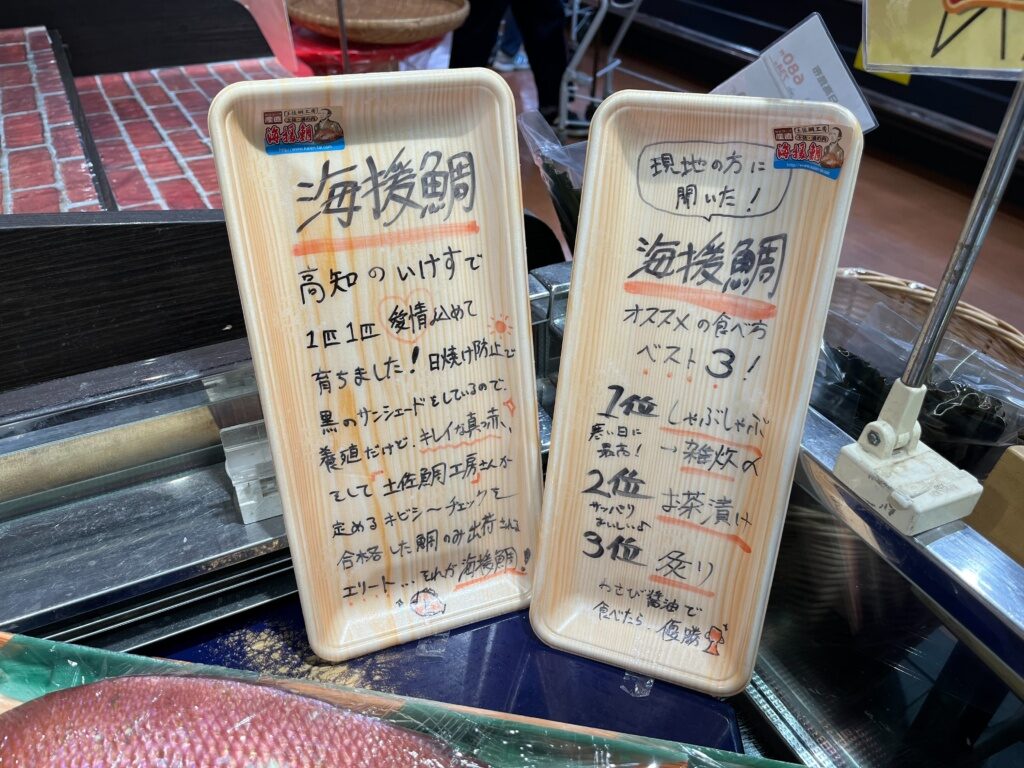 海援鯛
海援鯛
高知のいけすで
1匹1匹愛情込めて
育ちました！日焼け防止で
黒のサンシェードをしているので、
養殖だけど、キレイな真っ赤、
そして土佐鯛工房さんが
定めるキビシ〜チェックを
合格した鯛のみ出荷される
エリート…それが海援鯛！
海援鯛
現地の方に
聞いた！
海援鯛
オススメの食べ方
ベスト3！
1位 しゃぶしゃぶ
寒い日に
最高！
→雑炊〆
2位 お茶漬け
サッパリ
おいしいよ
3位 炙り
わさび醤油で
食べたら…優勝